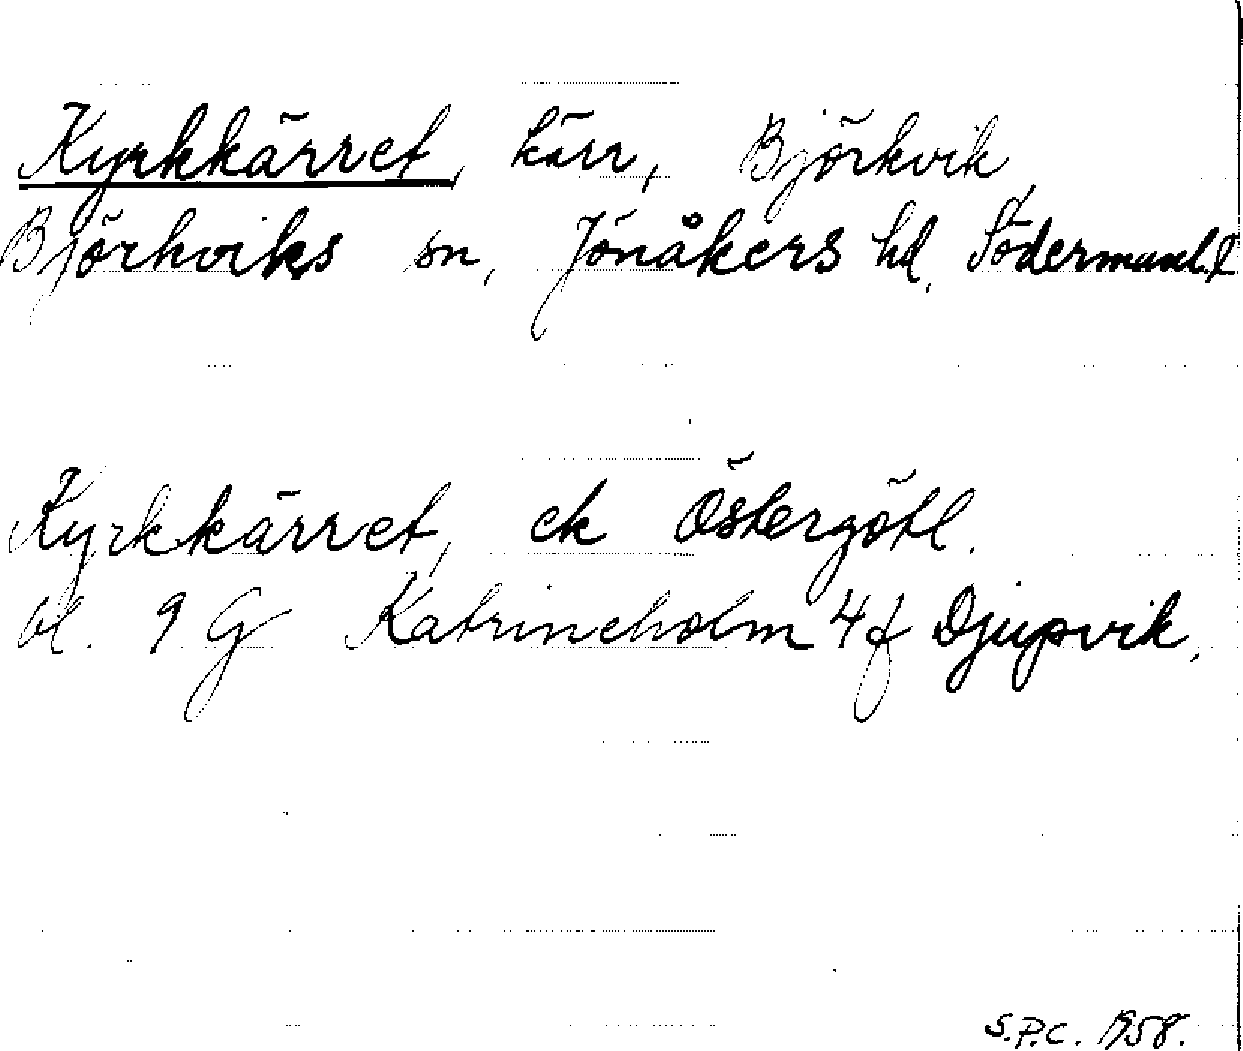 Kyrkkärret, kärr, Björkvik,
Björkviks sn, Jönåkers hd, Södermanl.l
Kyrkkärret, ek Östergötl.
bl. 9 G Katrineholm 4f Djupvik.
S.P.C. 1958.